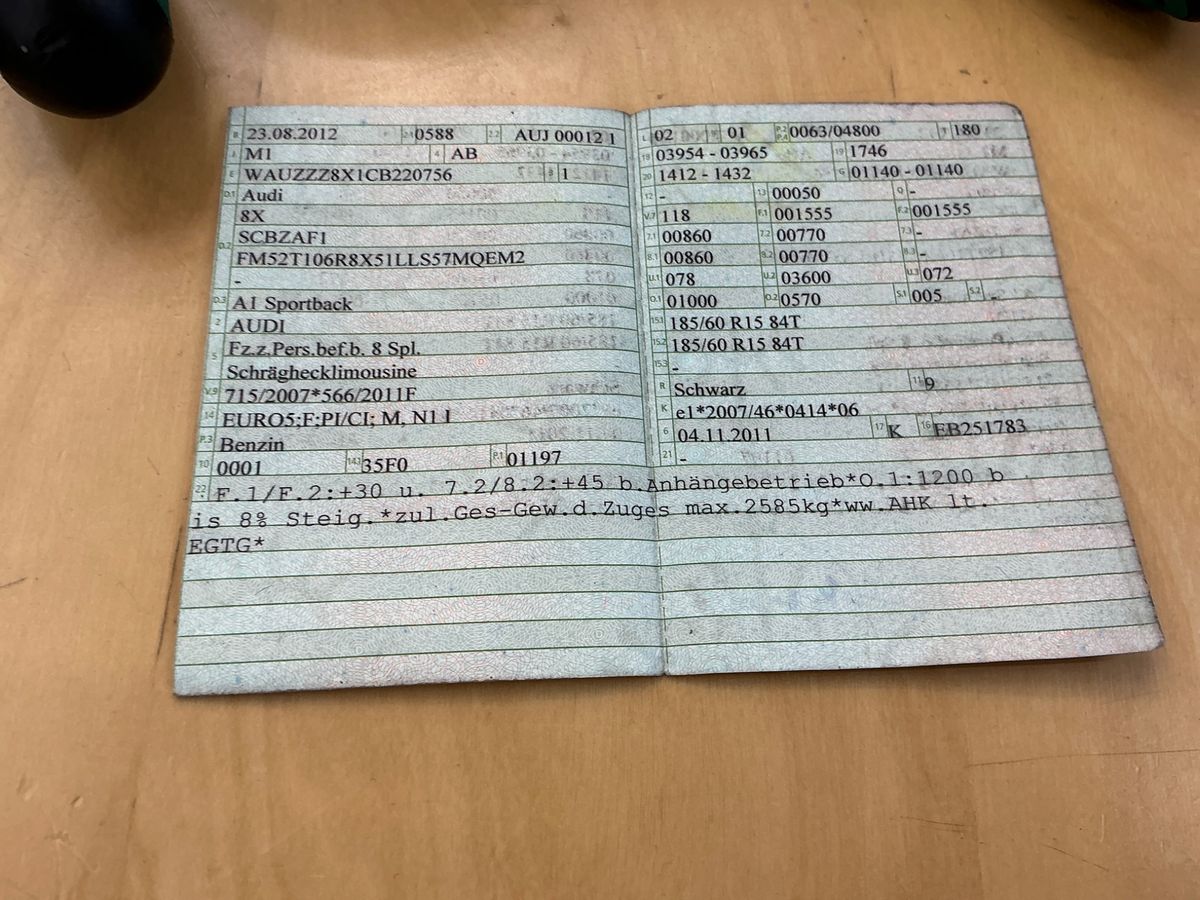 B 23.08.2012 2.1 0588 2.2 AUJ 00012 1
J M1 4 AB
E WAUZZZ8X1CB220756 3 1
D.1 Audi -
8X
D.2 SCBZAF1
FM52T106R8X51LLS57MQEM2
-
D.3 A1 Sportback
2 AUDI
5 Fz.z.Pers.bef.b. 8 Spl.
Schräghecklimousine
V.9 715/2007*566/2011F
14 EURO5;F;PI/CI; M, N1 I
P.3 Benzin
10 0001 14.1 35F0 P.1 01197
L 02 9 01 P.2 P.4 0063/04800 T 180
18 03954 - 03965 19 1746
20 1412 - 1432 G 01140 - 01140
12 - 13 00050 Q -
V.7 118 F.1 001555 F.2 001555
7.1 00860 7.2 00770 7.3 -
8.1 00860 8.2 00770 8.3 -
U.1 078 U.2 03600 U.3 072
O.1 01000 O.2 0570 S.1 005 S.2 -
15.1 185/60 R15 84T
15.2 185/60 R15 84T
15.3 -
R Schwarz 11 9
K e1*2007/46*0414*06
6 04.11.2011 17 K 16 EB251783
21 -
22 F.1/F.2:+30 u. 7.2/8.2:+45 b.Anhängebetrieb*O.1:1200 b
is 8% Steig.*zul.Ges-Gew.d.Zuges max.2585kg*ww.AHK lt.
EGTG*